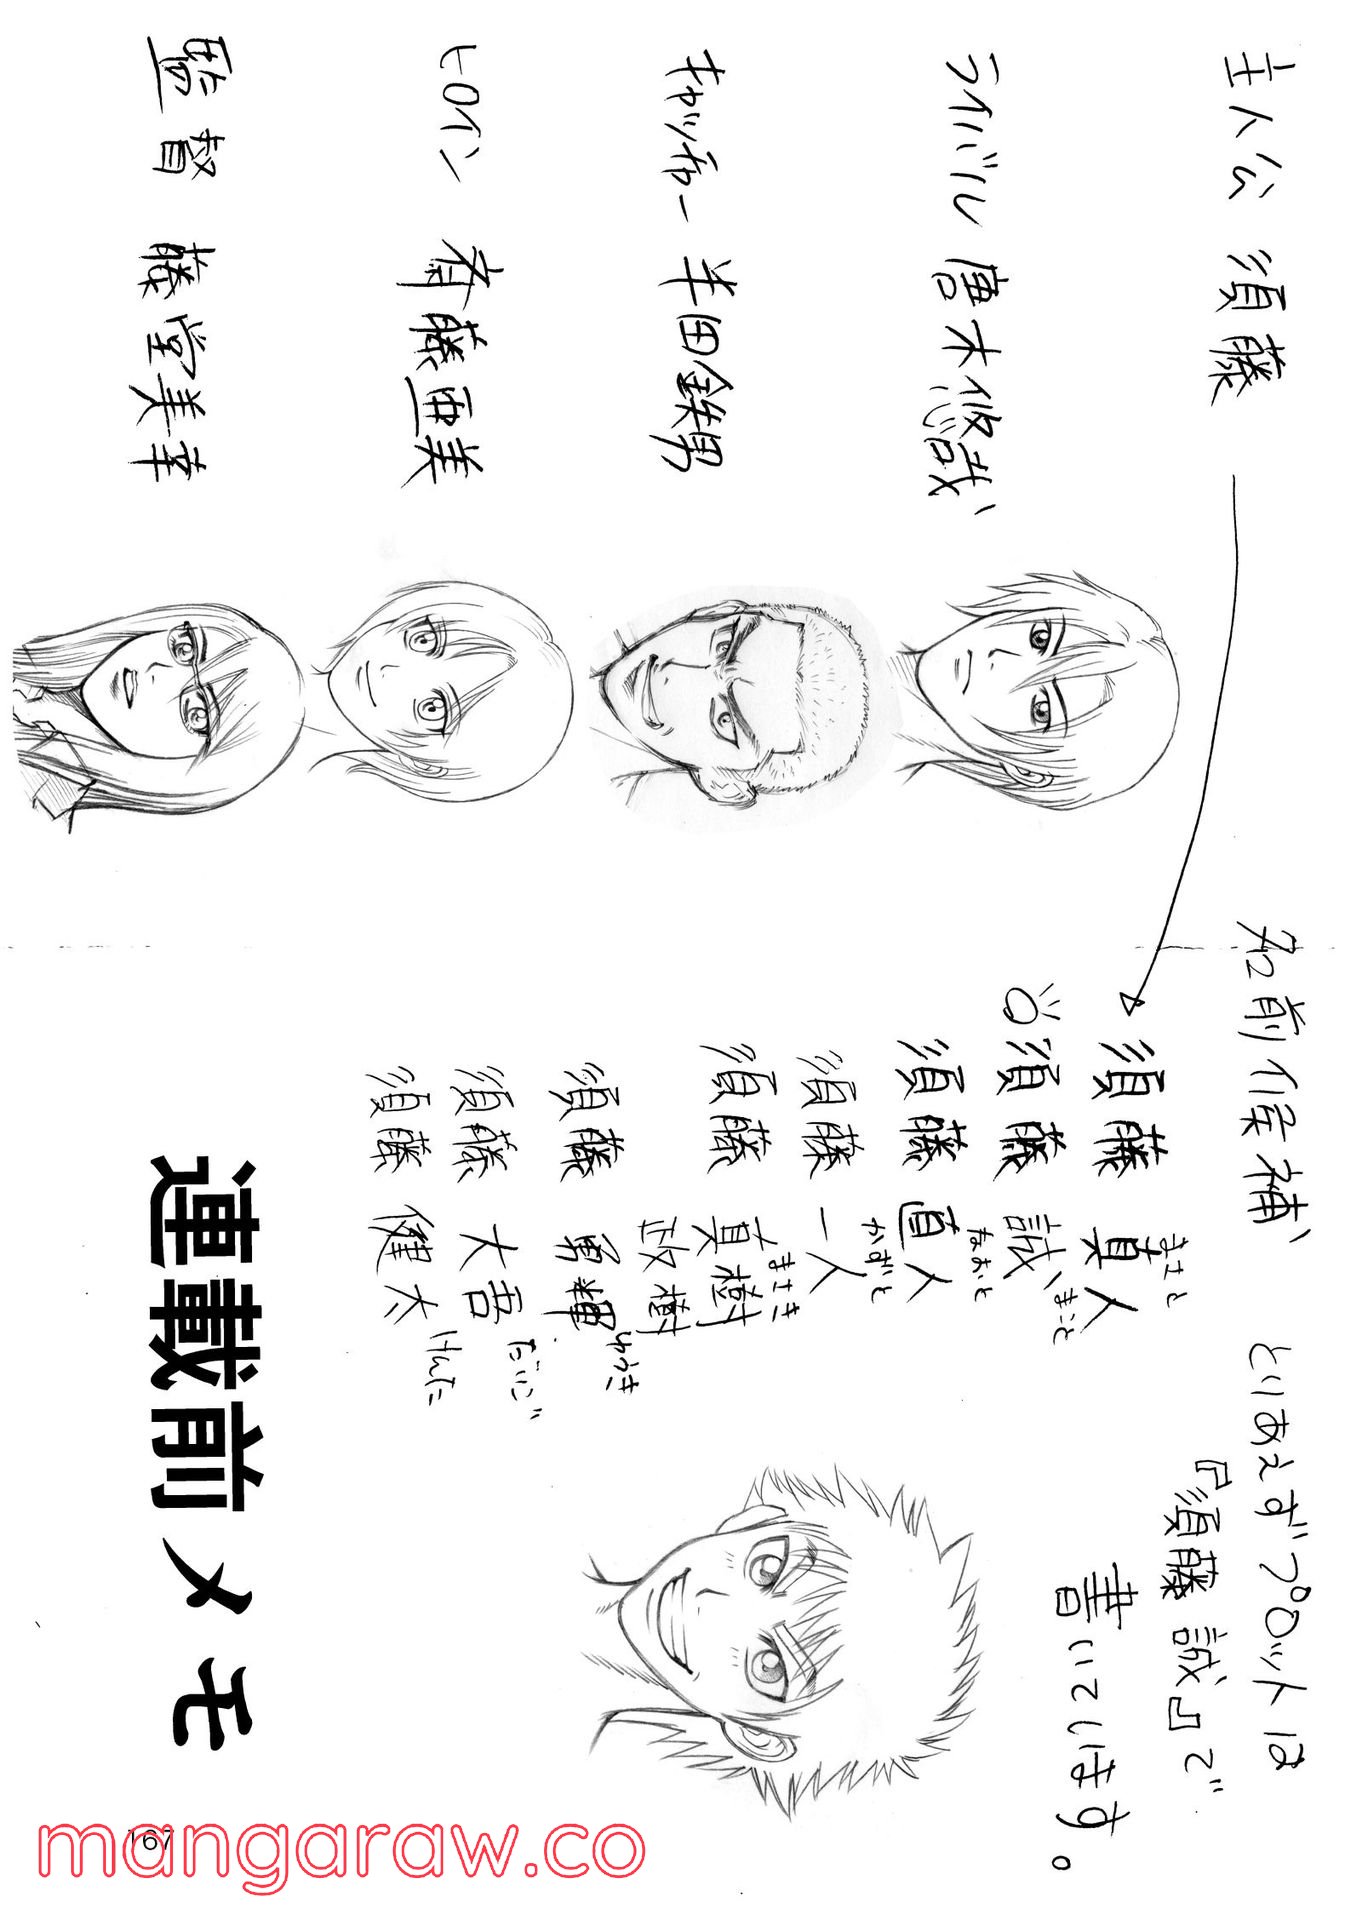 主人公 須藤
ライバル 唐木悠哉
キャッチャー 半田鉄男
ヒロイン 斉藤亜美
監督 藤堂美幸
名前候補
須藤 真人 まこと
須藤 誠 まこと
須藤 直人 なおと
須藤 一人 かずと
須藤 真樹 まさき
政樹
須藤 勇輝 ゆうき
須藤 大吾 だいご
須藤 健太 けんた
とりあえずプロットは
『須藤 誠』で
書いています。
連載前メモ
167
mangaraw.co